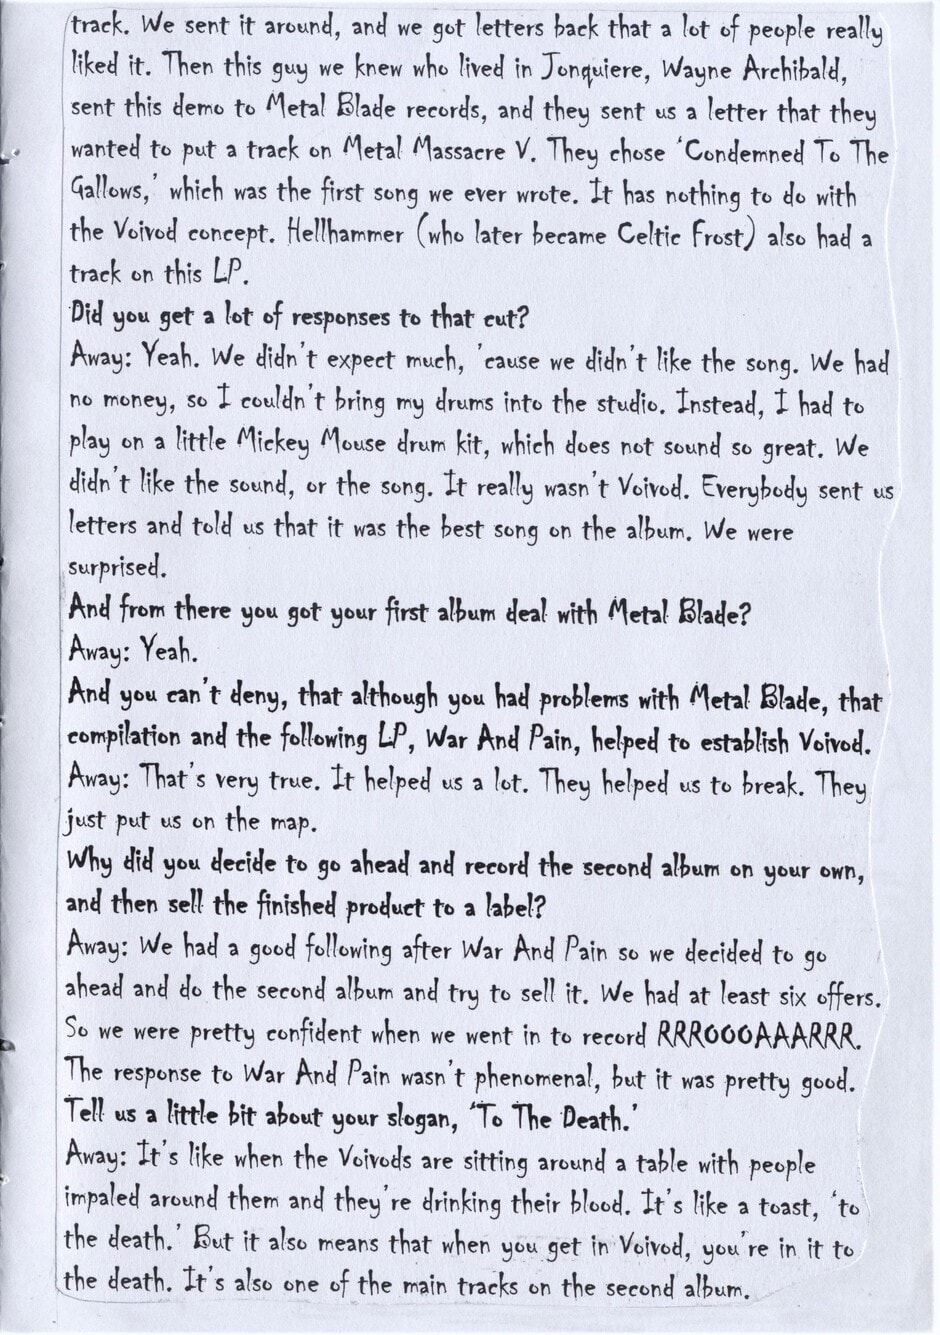 track. We sent it around, and we got letters back that a lot of people really
liked it. Then this guy we knew who lived in Jonquiere, Wayne Archibald,
sent this demo to Metal Blade records, and they sent us a letter that they
wanted to put a track on Metal Massacre V. They chose 'Condemned To The
Gallows,' which was the first song we ever wrote. It has nothing to do with
the Voivod concept. Hellhammer (who later became Celtic Frost) also had a
track on this LP.
Did you get a lot of responses to that cut?
Away: Yeah. We didn't expect much, 'cause we didn't like the song. We had
no money, so I couldn't bring my drums into the studio. Instead, I had to
play on a little Mickey Mouse drum kit, which does not sound so great. We
didn't like the sound, or the song. It really wasn't Voivod. Everybody sent us
letters and told us that it was the best song on the album. We were
surprised.
And from there you got your first album deal with Metal Blade?
Away: Yeah.
And you can't deny, that although you had problems with Metal Blade, that
compilation and the following LP, War And Pain, helped to establish Voivod.
Away: That's very true. It helped us a lot. They helped us to break. They
just put us on the map.
Why did you decide to go ahead and record the second album on your own,
and then sell the finished product to a label?
Away: We had a good following after War And Pain so we decided to go
ahead and do the second album and try to sell it. We had at least six offers.
So we were pretty confident when we went in to record RRROOOAAARRR.
The response to War And Pain wasn't phenomenal, but it was pretty good.
Tell us a little bit about your slogan, 'To The Death.'
Away: It's like when the Voivods are sitting around a table with people
impaled around them and they're drinking their blood. It's like a toast, 'to
the death.' But it also means that when you get in Voivod, you're in it to
the death. It's also one of the main tracks on the second album.